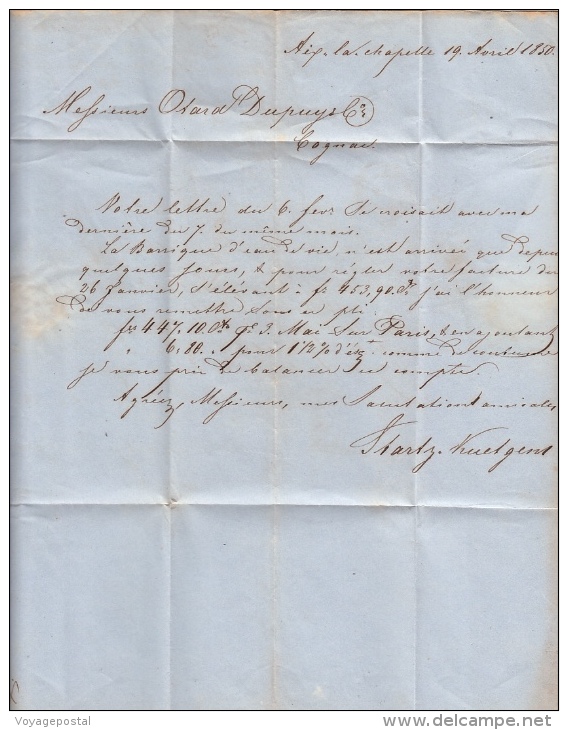 Aix-la-chapelle 19 Avril 1850.
Messieurs Otard Dupuy & Co
Cognac.
Votre lettre du 6. fevr. se croisait avec ma
dernière du 7 du même mois.
La Barrique d'eau de vie, n'est arrivée que depuis
quelques jours, & pour régler votre facture du
26 Janvier, s'élevant à fs 453,90 Cs. j'ai l'honneur
de vous remettre sous ce pli:
frs 447. 10. Cs 3. Mai sur Paris, & en ajoutant
" 6. 80. " pour 1 1/2 % d'escte comme de coutume
je vous prie de balancer ce compte.
Agréez, Messieurs, mes Salutations amicales,
Startz. Nuetgens
Voyagepostal
delcampe.net